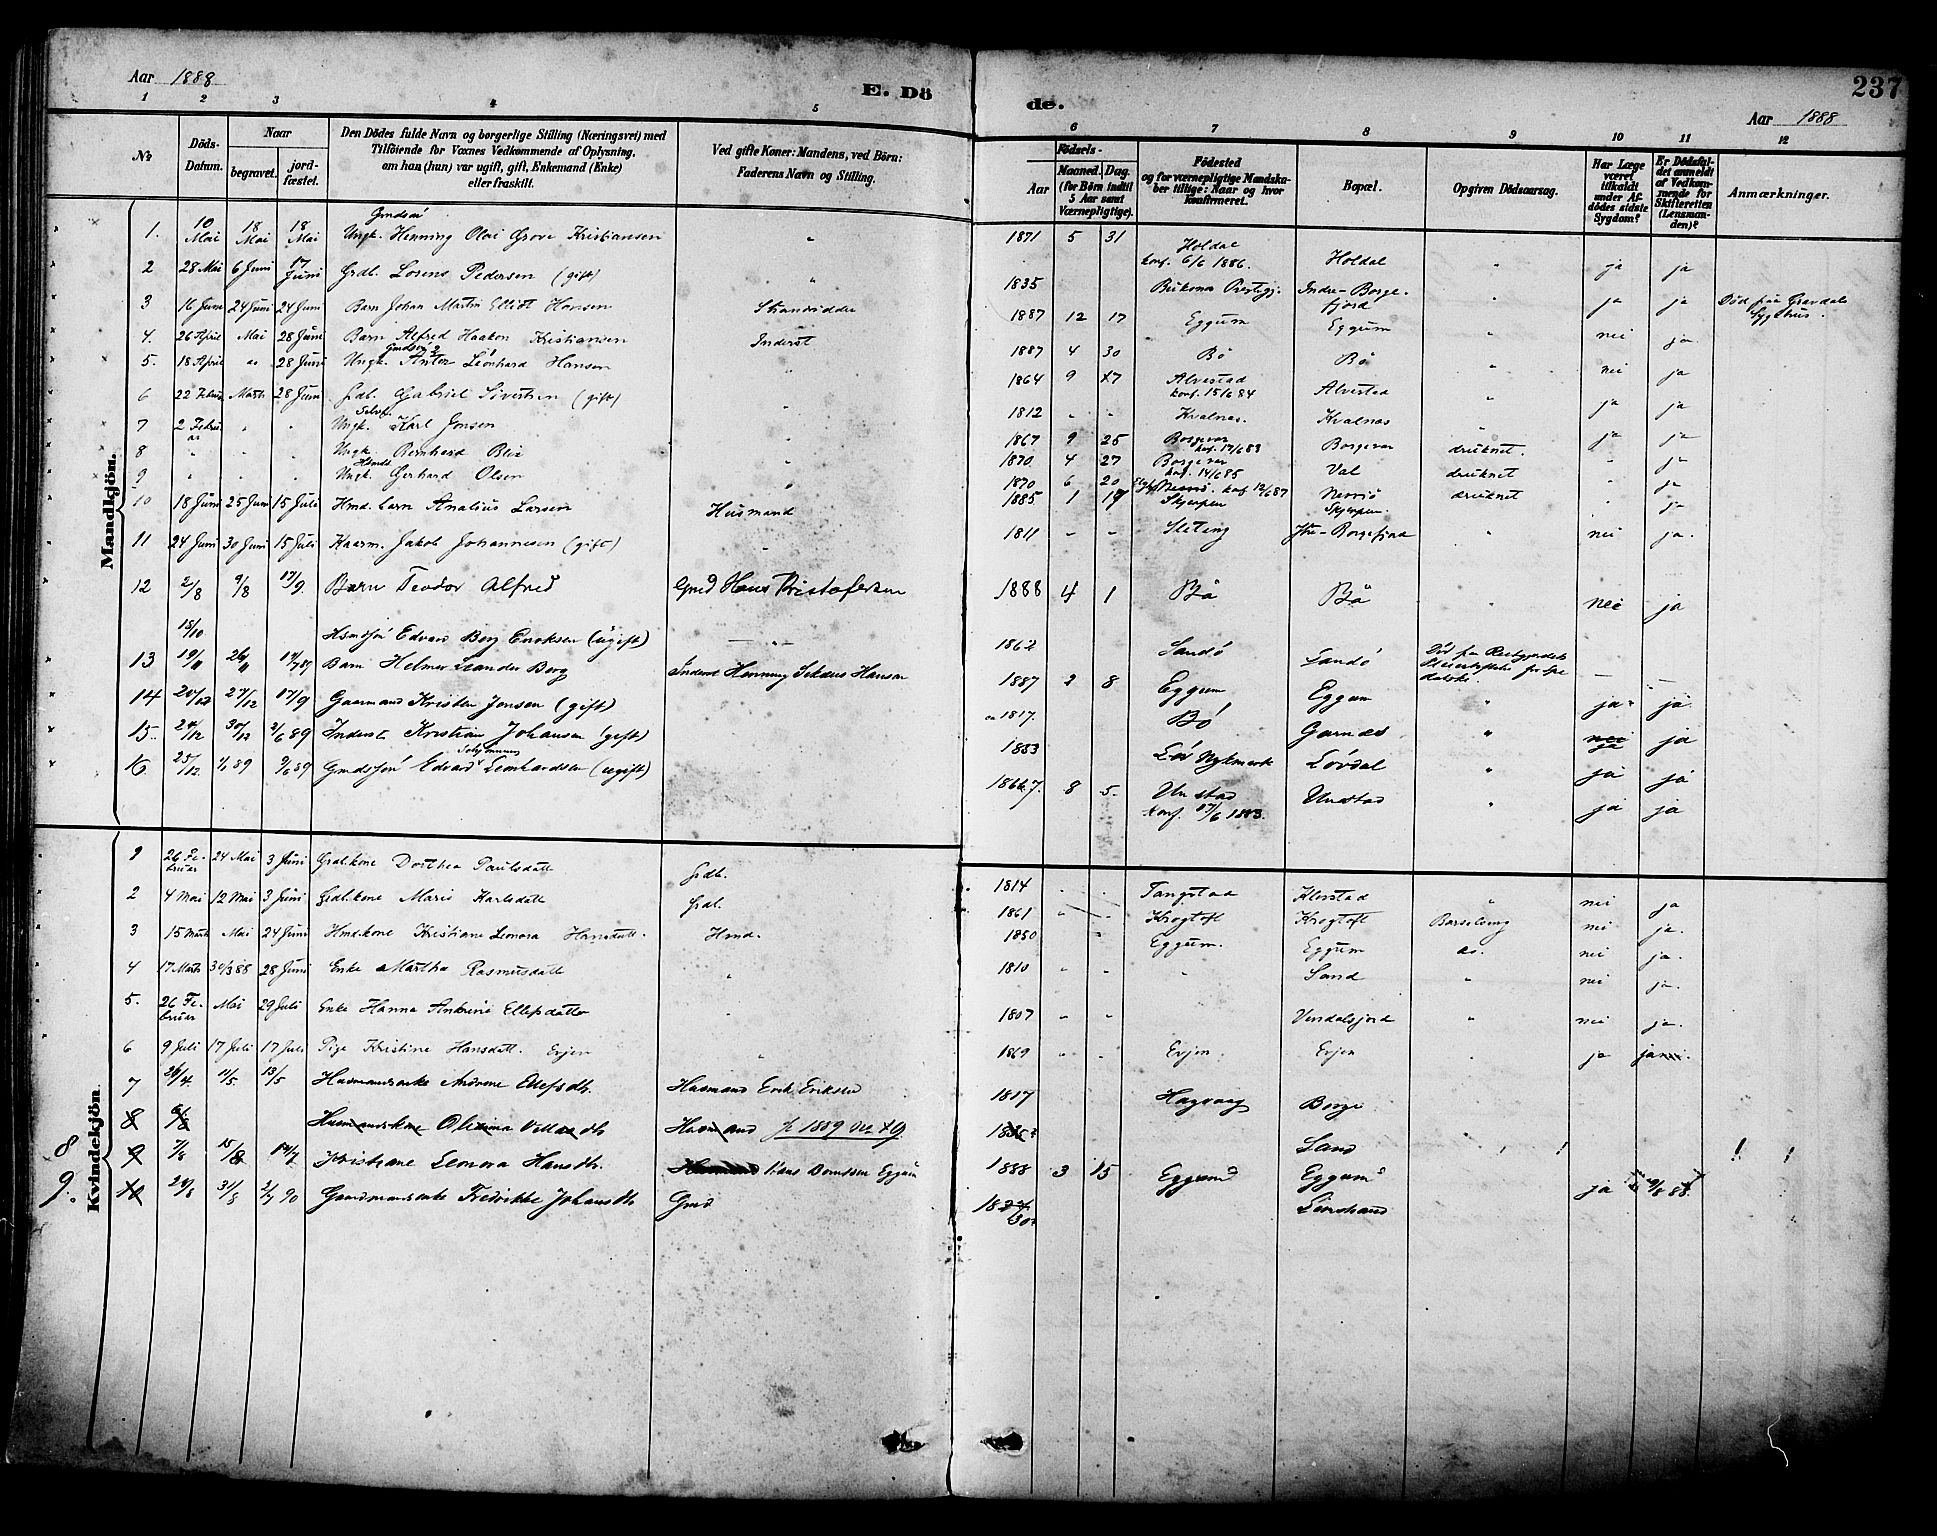 Aar 1888
E. Dö
de.
237
Aar 1888
1 2 3 4 5 6 7 8 9 10 11 12
No
Döds-Datum.
Naar
begravet.
jord-fæstet.
Den Dödes fulde Navn og borgerlige Stilling (Næringsvei) med
Tilföiende for Voxnes Vedkommende af Oplysning,
om han (hun) var ugift, gift, Enkemand (Enke)
eller fraskilt.
Ved gifte Koner: Mandens, ved Börn:
Faderens Navn og Stilling.
Födsels-
Aar
Maaned. Dag.
(for Börn indtil
5 Aar samt
Værnepligtige).
Födested
og for værnepligtige Mandska-
ber tillige: Naar og hvor
konfirmeret.
Bopæl.
Opgiven Dödsaarsag.
Har Læge
været
tilkaldt
under Af-
dödes sidste
Sygdom?
Er Dödsfal-
det anmeldt
af Vedkom-
mende for
Skifteretten
(Lensman-
den)?
Anmærkninger.
Mandkjön.
1. 10 Mai 18 Mai 18 Mai Gmdsön Ungk. Henning Olai Grove Kristiansen " 1871 5 31 Holdal konf. 6/6 1886. Holdal " ja ja
2 28 Mai 6 Juni 17 Juni Grdb. Lorens Pedersen (gift) " 1835 Prestegj. Indre-Borgefjord " ja ja Död paa Gravdals Sygehus.
3 16 Juni 24 Juni 24 Juni Barn Johan Martin Elliot Hansen Strandsidder 1887 12 17 Eggum Eggum " nei ja
4. 26 April Mai 28 Juni Barn Alfred Haakon Kristiansen Inderst 1887 4 30 Bö Bö " nei ja
5. 18 April " 28 Juni Ungk. Anton Leonhard Hansen " 1864 9 17 Alvestad konf. 15/6 84 Alvestad " ja ja
6 22 Februar Marts 28 Juni Grdb. Gabriel Sivertsen (gift) " 1812 " " Kvalnes. Kvalnes " ja ja
7 2 Februar " " Ungk. Karl Jonsen " 1867 9 25 Borgevær konf. 17/6 83 Borgevær druknet. " ja
8 " " " Ungk. Bernhard " 1870. 4 27 Borgevær konf. 14/6 85 Val druknet " ja
9 " " " Ungk. Gerhard Olsen " 1870 6 20 konf. 12/6 87 druknet " ja
10 18 Juni 25 Juni 15 Juli Hmd. barn Analius Larsen Husmand 1885 1 19 Skjerpen Skjerpen.
11 24 Juni 30 Juni 15 Juli Kaarm. Jakob Johannesen (gift) " 1811 - - Steting Ytre-Borgefjord " nei ja.
12 2/8 9/8 17/9. Barn Teodor Alfred Gmd Hans Kristofersen 1888 4 1 Bö Bö " nei ja
18/10 Hsmdsön Edvard Berg Eriksen (ugift) — " — 1862 Sandö Sandö Död paa
13 19/11 26/11 14/7 89 Barn Helmer Leander Berg Inderst Henning Hansen 1887 2 8 Eggum Eggum " ja ja.
14 20/12 27/12 17/9 Gaarmand Kristen Jonsen (gift) 1817. Bö Garnes " nei ja ja
15. 24/12 30/12 2/6 89 Inderst Kristian Johansen (gift) 1833 Nykmark Lövdal " ja ja
16. 25/12 1/1 89 9/6 89 Gmdsön Edvard Leonhardsen (ugift) 1867. 8 5. Unstad Konf. 17/6 1883. Unstad " ja ja
Kvindekjön.
1 26 Februar 24 Mai 3 Juni Grdb.kone Dorthea Paulsdatt Grdb. 1814 " " Tangstad Klerstad " nei ja
2 4 Mai 12 Mai 3 Juni Grdb.kone Marie Karlsdatt Grdb. 1861 " " Krogtoft Krogtoft Barselseng nei ja.
3 15 Marts Mai 24 Juni Hmd.kone Kristiane Leonora Hansdatt. Hmd. 1850 " Eggum. Eggum do. nei ja.
4 17 Marts 30/3 88 28 Juni Enke Martha Rasmusdatt " 1810 " " " Sand " nei ja.
5. 26 Februar Mai 29 Juli Enke Hanna Ellefsdatter " 1807 " " Vendalsjord " nei ja.
6 9 Juli 17 Juli 17 Juli Pige Kristine Hansdatt. Evjen " 1869 " " Evjen. Evjen " ja ja
7 26/4 11/5 13/5 Husmandsenke Andrine Ellefsdtr. Husmand Erik Eriksen 1817 Hagvaag Borge
8 Husmandskone Husmand 1889 Sand
8 9 7/6 15/8 14/7 Kristiane Leonora Hansdtr. Hans Berntsen Eggum 1888 3 15 Eggum Eggum ja 9/8 88.
9. 10 24/8 31/8 2/7 90 Gaardmandsenke Fredrikke Johansdtr. Gmd 1830